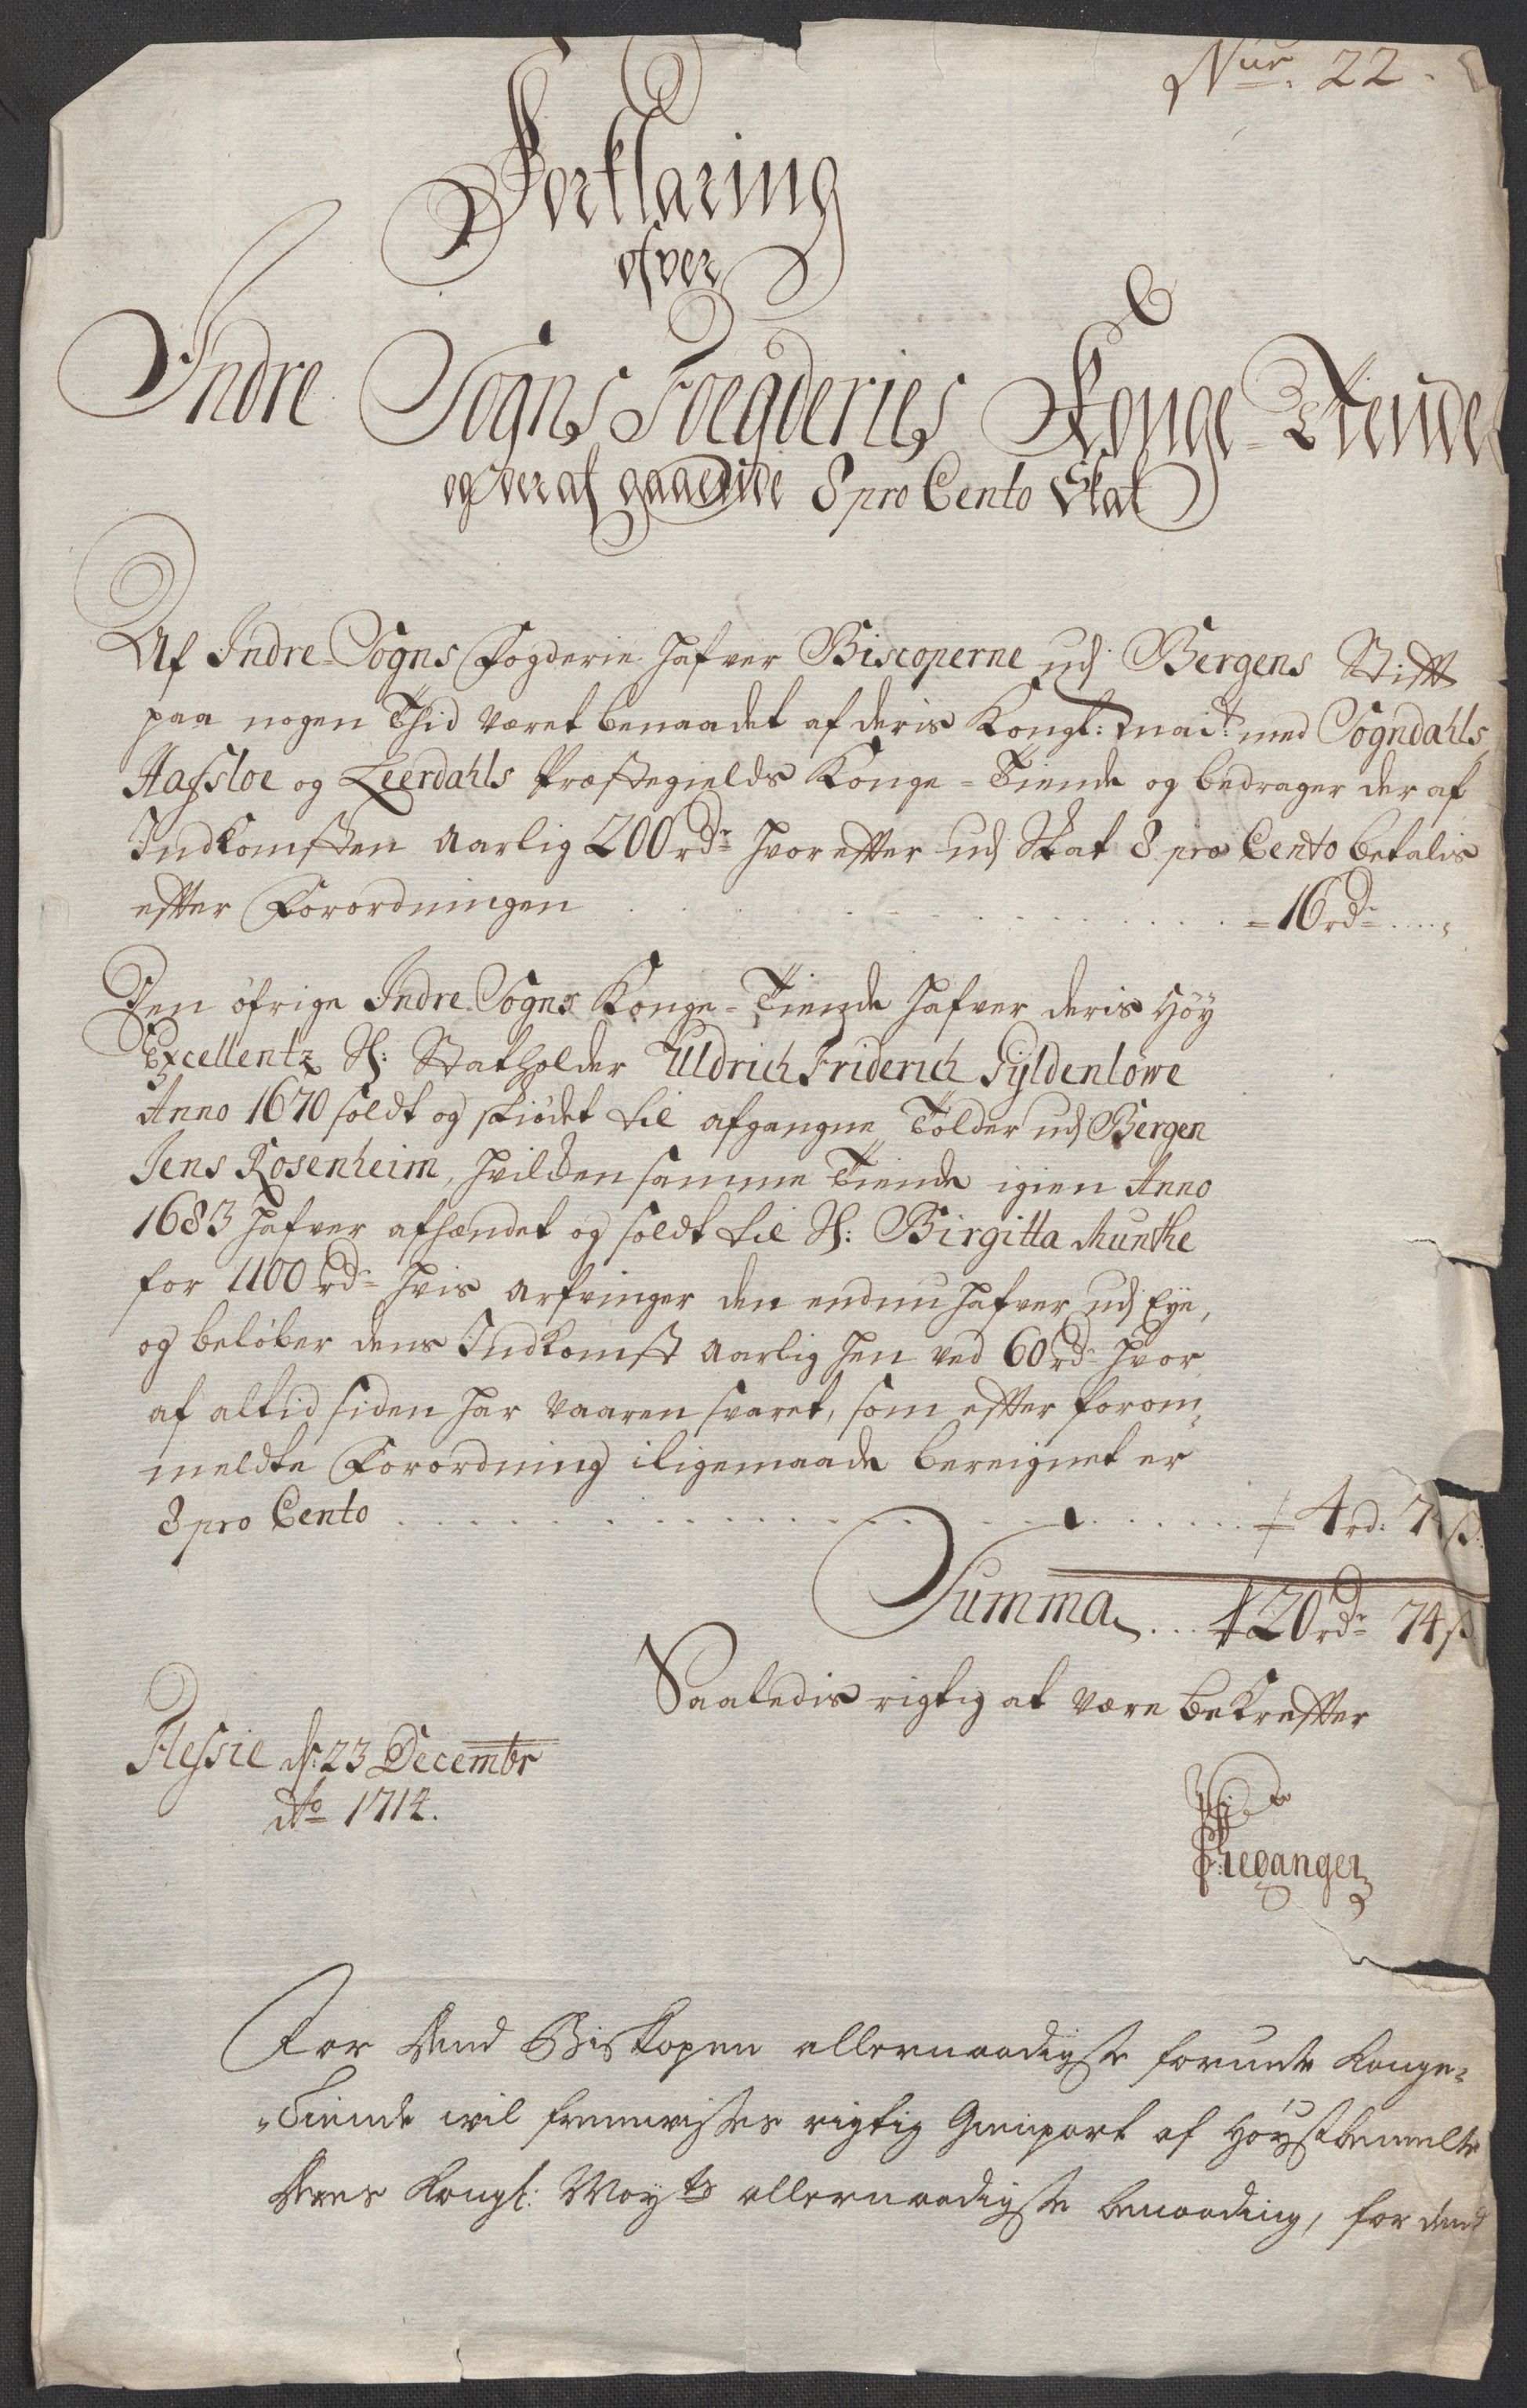 Nur. 22.
Forklaring
ofver
Indre Sogns Foegderies Konge-Tiende
og der af gaaende 8 pro Cento Skat
Af Indre-Sogns Fogderie hafver Biscoperne udj Bergens Stift
paa nogen Thid været benaadet af deris Kongl: mait: med Sogndahls,
Hafsloe og Leerdahls Præstegields Konge-Tiende og bedrager der af
Indkomsten aarlig 200 rdr hvor efter udj Skat 8 pro Cento betalis
efter Forordningen = 16 rdr
Den öfrige Indre Sogns Konge-Tiende hafver deris Höy
Excellentz H: Statholder Uldrich Friderich Gyldenlöwe
Anno 1670 soldt og skiödet til afgangne Tolder udj Bergen
Jens Rosenheim, hvilken samme Tiende igien Anno
1683 hafver afhændet og soldt til H: Birgitta Munthe
for 1100 rdr hvis arfvinger den endnu hafver udj Eye,
og belöber dens Indkomst aarlig hen ved 60 rdr hvor
af altid siden har vaaren svaret, som efter forom
meldte Forordning iligemaade bereignet er
8 pro Cento 4 rd: 74 s:
Summa 20 rdr 74 s
Saaledis rigtig at være bekrefter
Flessie d: 23 Decembr
Ao 1714.
For dend Biskopen allernaadigste forunte Konge-
Tiende vil fremvises rigtig Gienpart af Höystbemelte
Deres Kongl: Mayts allernaadigste benaading, for dend